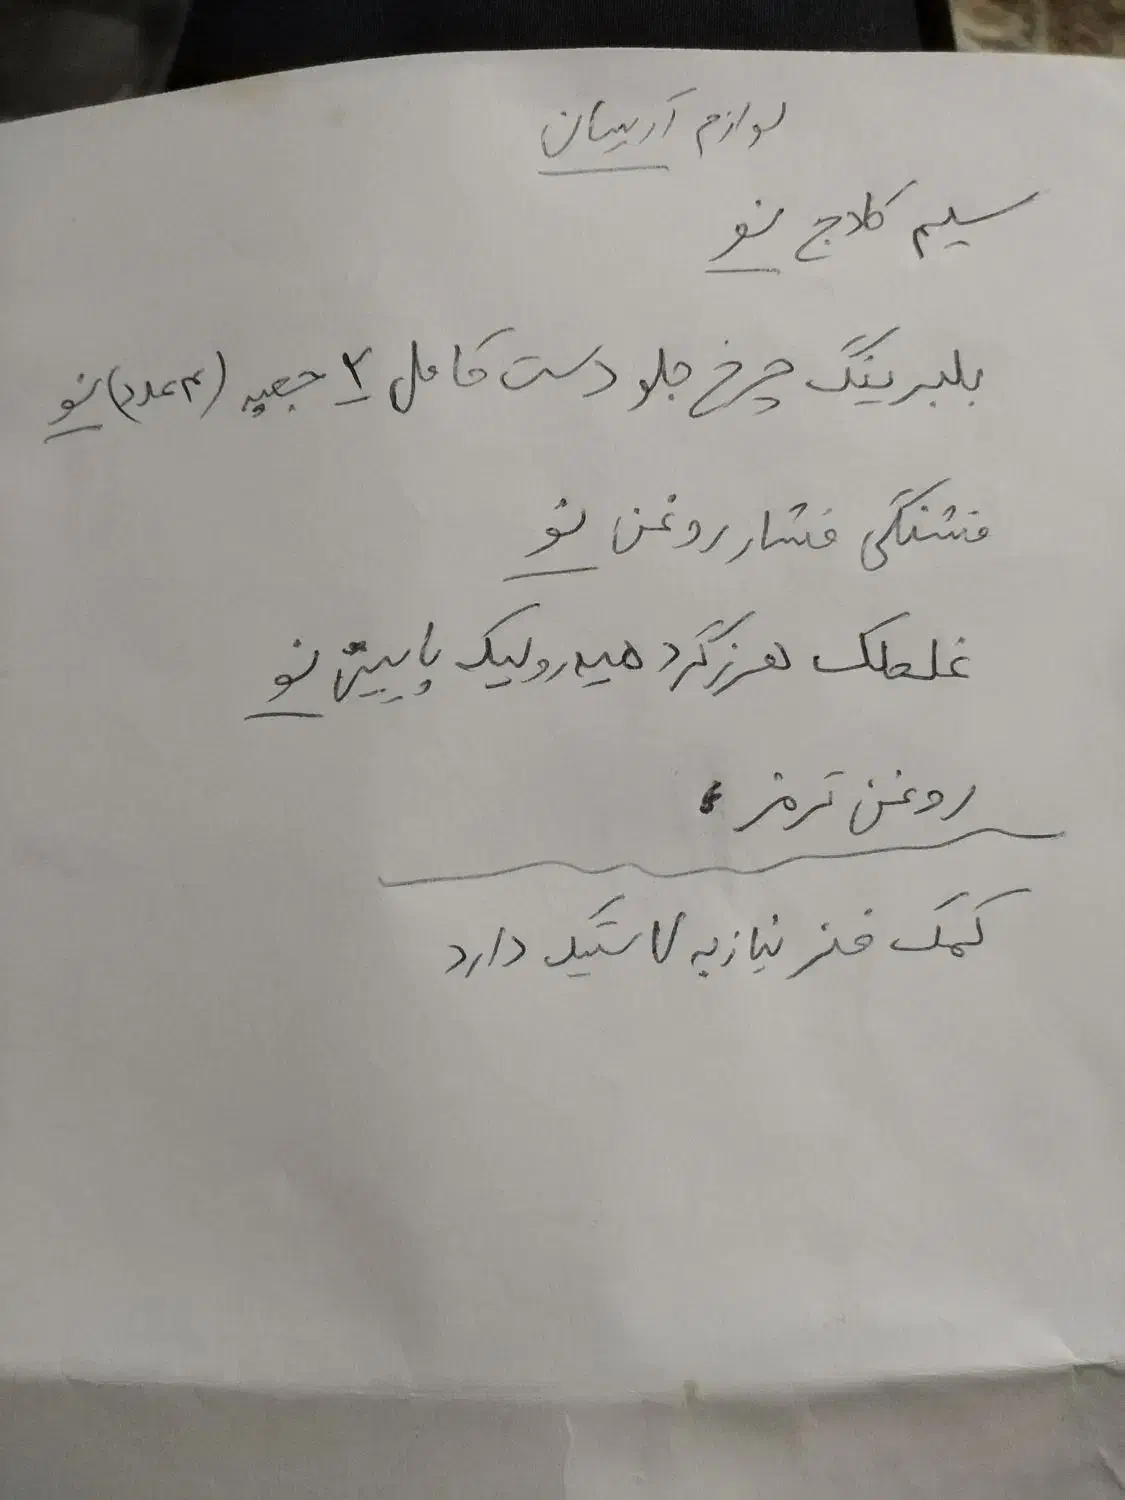 لوازم آریسان
سیم کلاج نو
بلبرینگ چرخ جلو دست کامل ۲ جعبه (۴ عدد) نو
فشنگی فشار روغن نو
غلطک هرزگرد هیدرولیک پایین نو
روغن ترمز
کمک فنر نیاز به لاستیک دارد